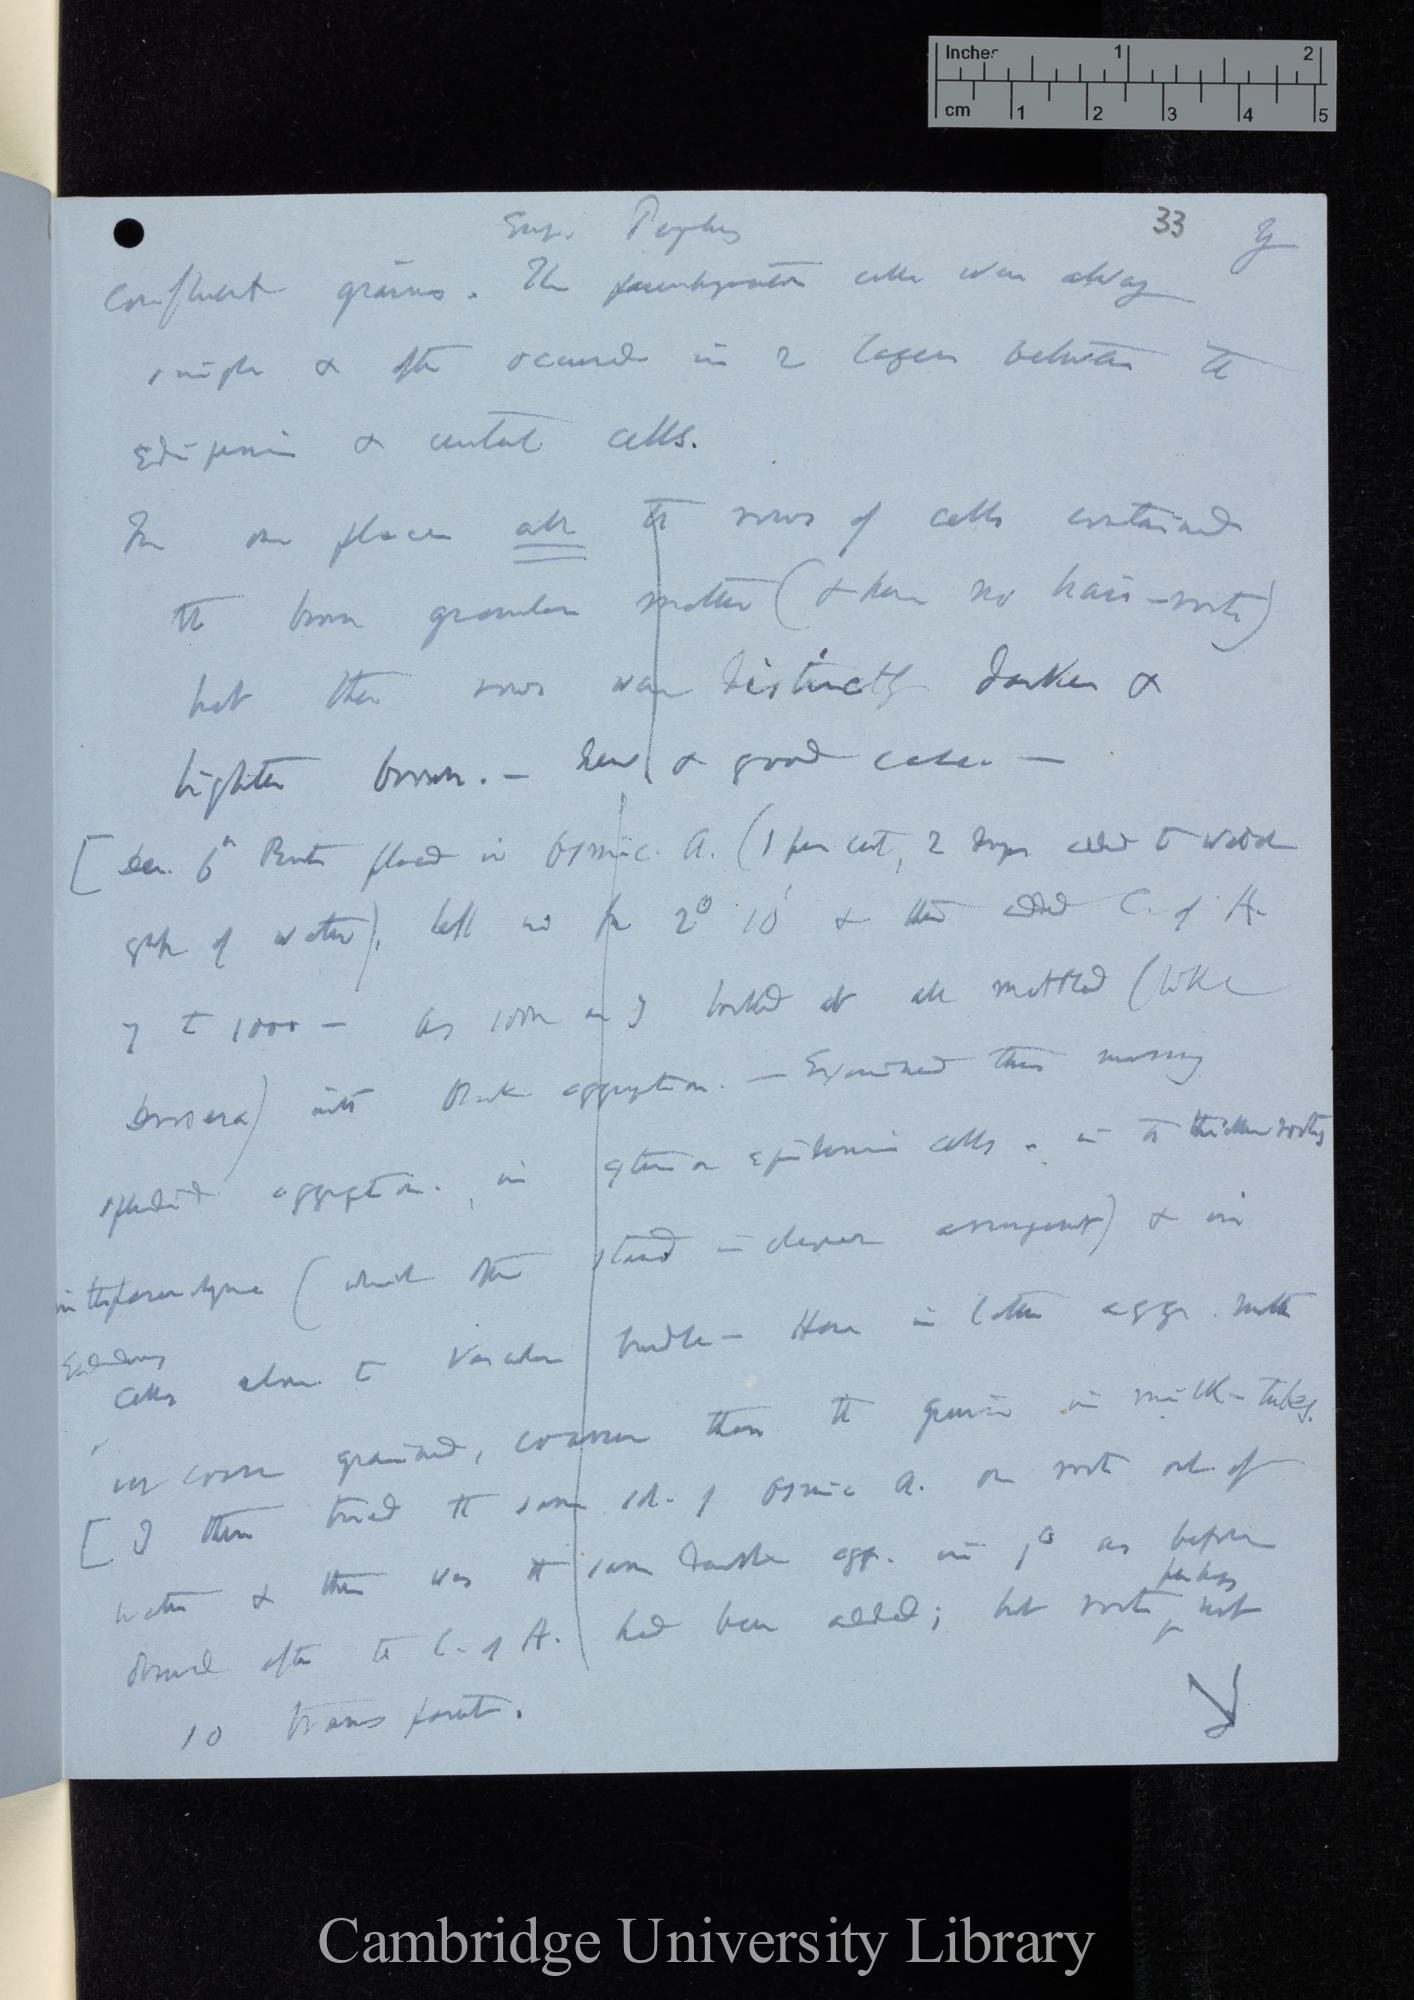 Inches 1 2
cm 1 2 3 4 5
33
Euph. Peplus
confluent grains. The parenchymatous cells were always
simple & often occurred in 2 layers between the
epidermis & central cells.
In one place all the rows of cells contained
the brown granular matter (& here no hair-roots)
but then rows were distinctly darker &
brighter brown. — New & good case. —
[Dec. 6th Roots placed in Osmic. A. (1 per cent, 2 drops added to watch
glass of water), left so for 2° 10' & then added C. of A.
7 to 1000 — As soon as I looked at all mottled (like
Drosera) with aggregation. — Examined this morning
splendid aggregation. in exterior epidermis cells. in the thicker roots
in the parenchyma (which often stand in arrangement) & in
Endodermis
cells close to Vascular bundle — Here in latter aggr. matter
very coarse grained, coarser than the grains in milk-tubes.
[I then tried the same sol. of Osmic A. on roots out of
water & there was the same aggr. in 1° as before
perhaps
observed after the C. of A. had been added; but roots not
so transparent.
Cambridge University Library